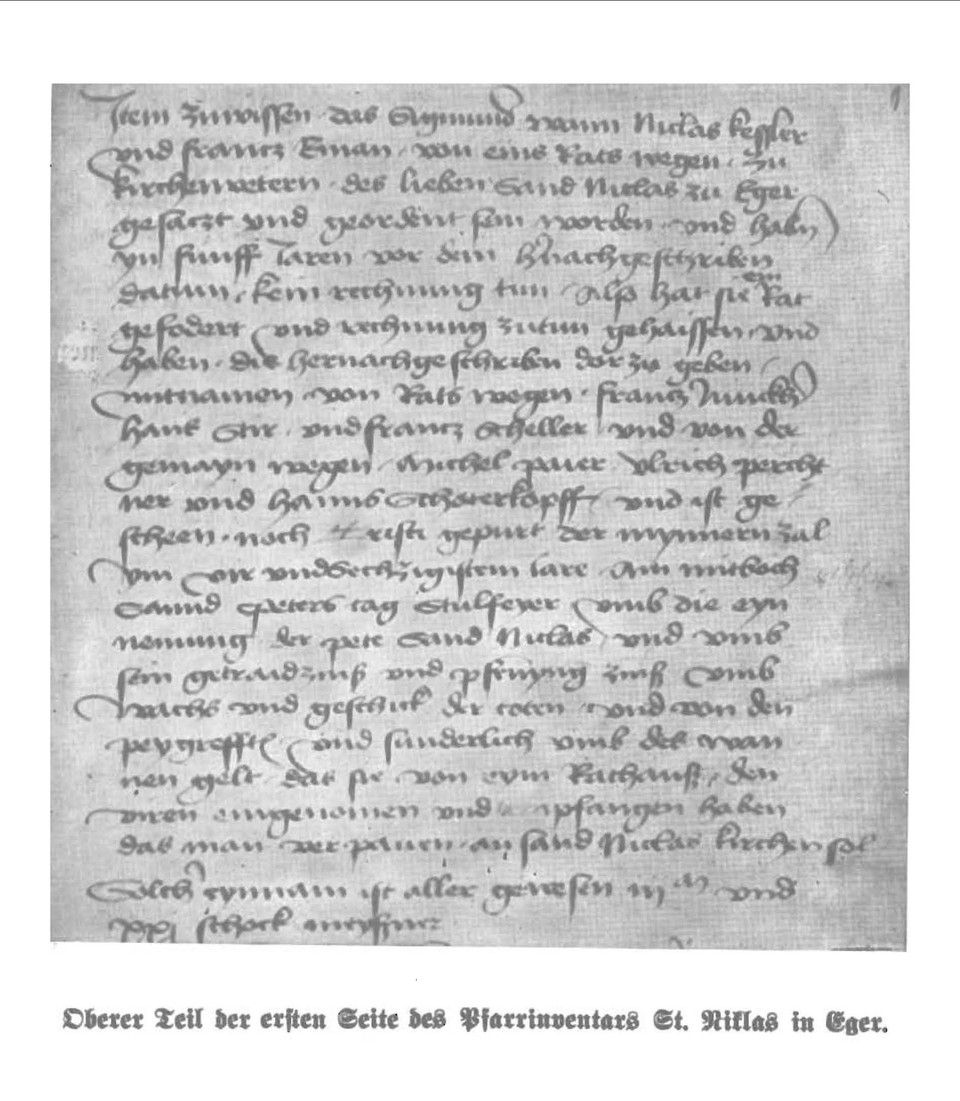 Item zuwissen das Sigmund wann Niclas kessler
vnd francz Eman von eins Rats wegen zu
kirchenvetern des lieben Sand Niclas zu Eger
gesaczt vnd geordent sein worden vnd habn
yn funff Jaren vor dem hernachgeschriben
datum kein rechnung tun Also hat sie ein Rat
gefodert vnd rechnung zutun gehaissen vnd
haben die hernachgeschriben dorzu geben
mitnamen von Rats wegen francz
hans Stir vnd francz Scheller vnd von der
gemayn wegen Michel pauer vlrich percht
ner vnd hanns Schoterkopff vnd ist ge
scheen noch risti gepurt der mynnern zal
ym vir vndSechzigistem iare Am mitboch
Sannd peters tag Stulfeyer vmb die eyn
nemung der pete Sand Niclas vnd vmb
sein getraidzinß vnd pfennyng zinß vmb
wachs vnd geschick der toten vnd von den
peygrefft vnd sunderlich vmb des wan
nen gelt das sie von eym Rathauß den
viren eingenomen vnd enpfangen haben
das man verpauen an sand Niclas kirchen sol
Solch synnam ist aller gewesen iij m vnd
xxj schock
Oberer Teil der ersten Seite des Pfarrinventars St. Niklas in Eger.